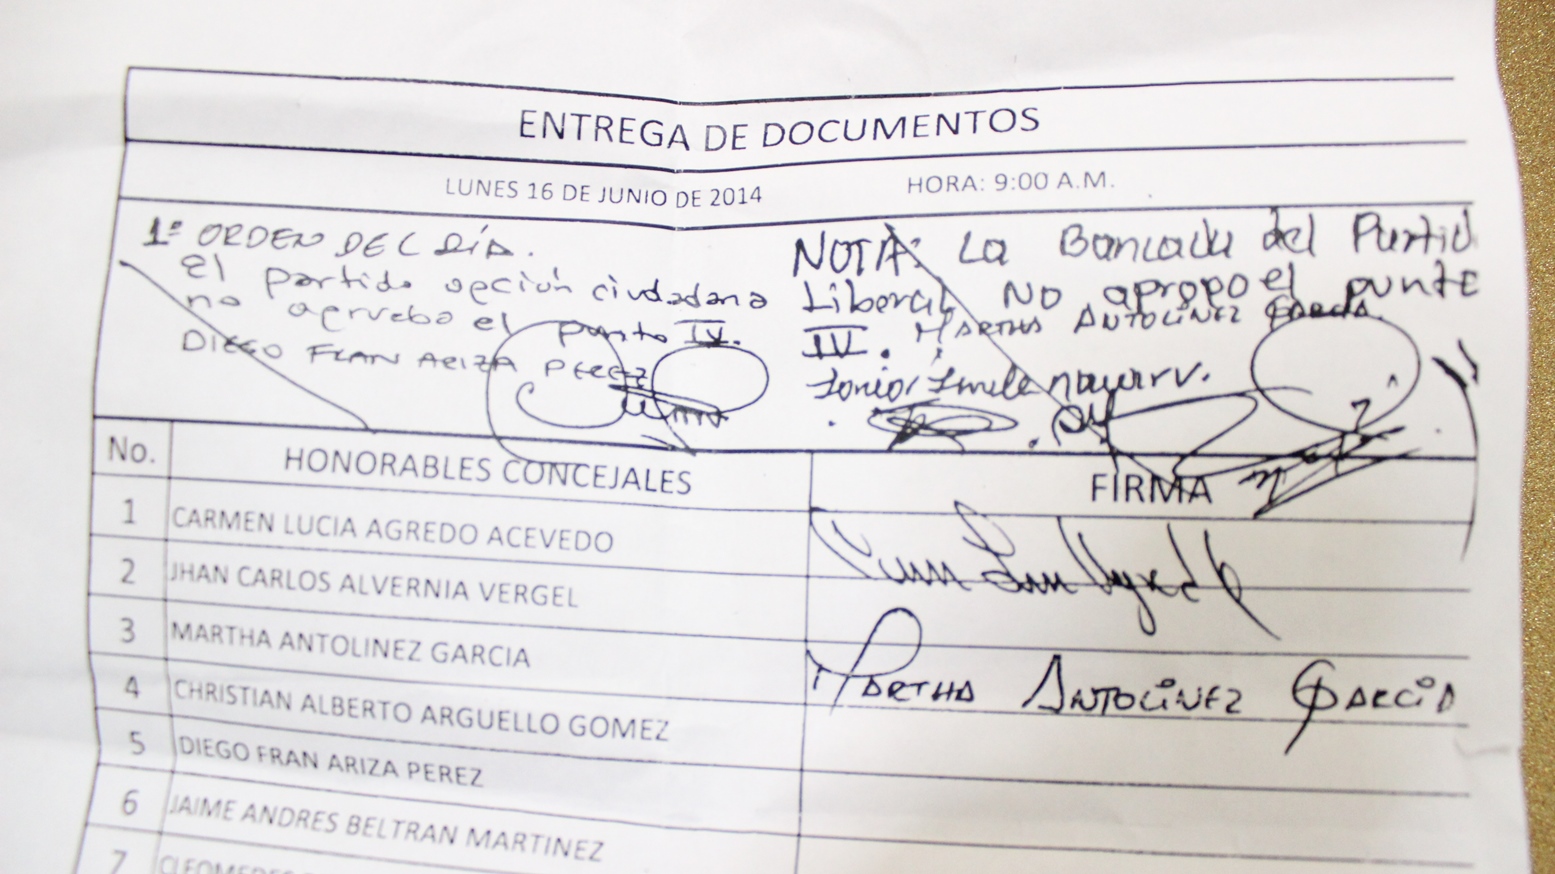 ENTREGA DE DOCUMENTOS
LUNES 16 DE JUNIO DE 2014 HORA: 9:00 A.M.
1º ORDEN DEL DÍA.
El partido opción ciudadana
no aprueba el punto IV.
DIEGO FRAN ARIZA PEREZ
NOTA: La Bancada del Partid
Liberal NO apropo el punto
IV. MARTHA ANTOLINEZ GARCIA.
No. HONORABLES CONCEJALES FIRMA
1 CARMEN LUCIA AGREDO ACEVEDO
2 JHAN CARLOS ALVERNIA VERGEL
3 MARTHA ANTOLINEZ GARCIA MARTHA ANTOLINEZ GARCIA
4 CHRISTIAN ALBERTO ARGUELLO GOMEZ
5 DIEGO FRAN ARIZA PEREZ
6 JAIME ANDRES BELTRAN MARTINEZ
7